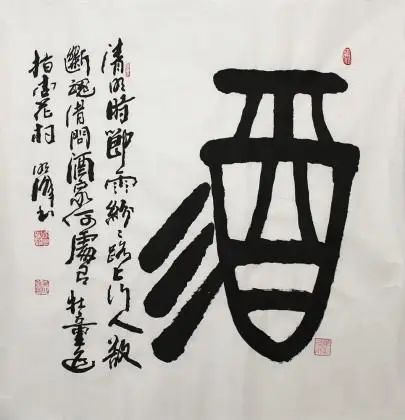 酒
清明時節雨紛々路上行人欲
斷魂借問酒家何處有牧童遥
指杏花村